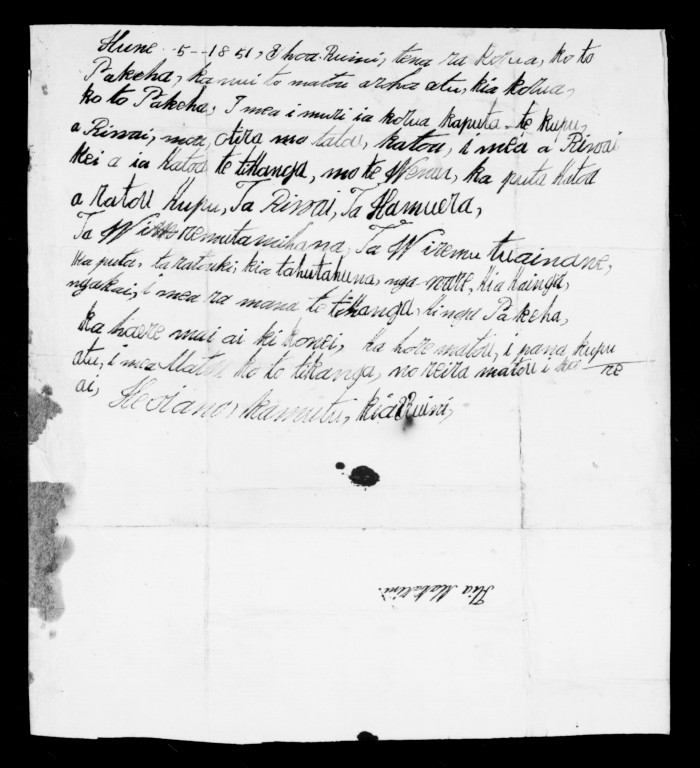 Hune 5--1851, E hoa Ruini, tena ra korua, ko to
Pakeha, ka nui to matou aroha atu, kia korua,
ko to Pakeha, I mea i muri ia korua kaputa te kupu,
a Riwai, moa, otira mo tatou, katoa, i mea a Riwai
kei a ia katoa te tikanga, mo te Wenua, ka puta katoa
a ratou kupu, Ta Riwai, Ta Hamuera,
Ta Wiremutamihana, Ta Wiremu tuainane,
ka puta, ta ratouki; kia tahutahuna, nga ware, kia kainga,
ngakai, i mea ra mana te tikanga, kinga Pakeha,
ka haere mai ai ki konei, ka hore matou, i pana, kupu
atu, i mea Matou ko to tikanga, no reira matou i kore
ai,
Heoiano, kamutu, kia Ruini,
Kia Makalini.